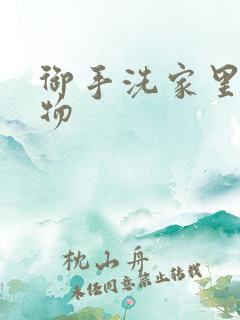 御手洗家里
物
枕山舟
未经同意禁止转载